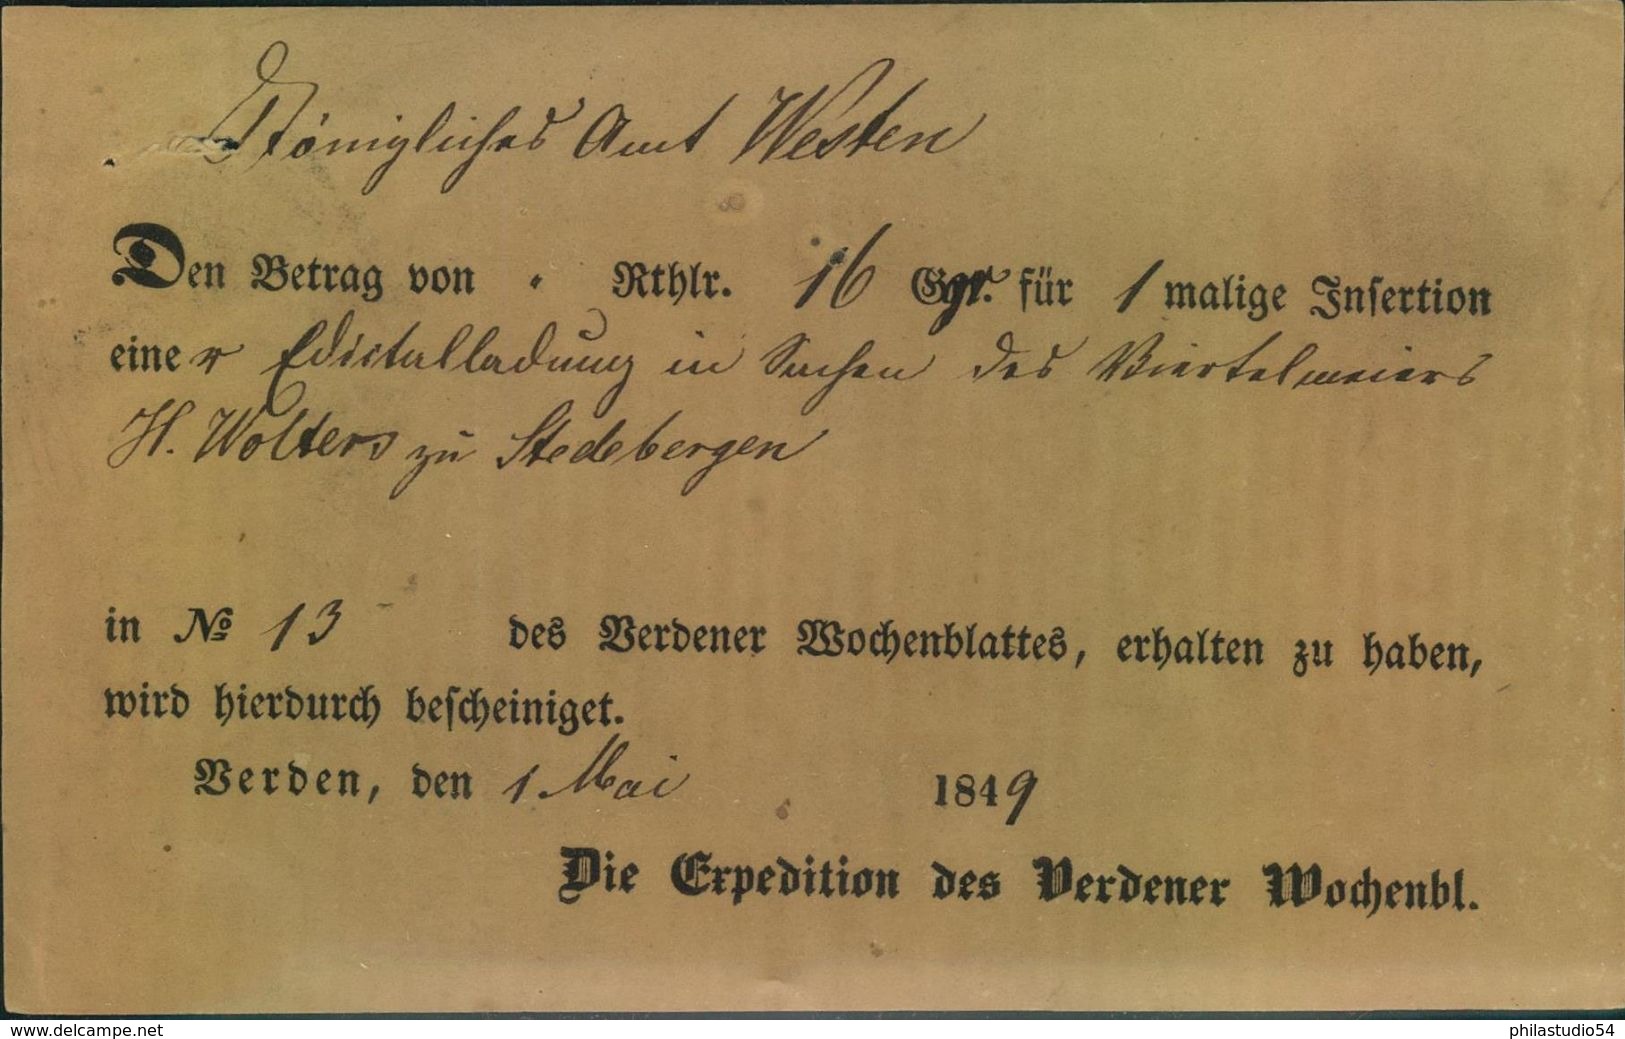 Königliches Amt Westen
Den Betrag von " Rthlr. 16 Ggr. für 1 malige Insertion
einer Edictalladung in Sachen des Viertelmeiers
H. Wolters zu Stedebergen
in № 13 des Verdener Wochenblattes, erhalten zu haben,
wird hierdurch bescheiniget.
Verden, den 1. Mai 1849
Die Expedition des Verdener Wochenbl.
www.delcampe.net
philastudio54